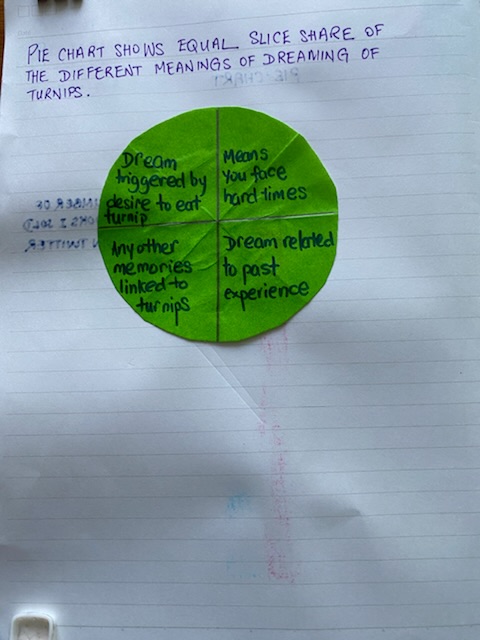 PIE CHART SHOWS EQUAL SLICE SHARE OF
THE DIFFERENT MEANINGS OF DREAMING OF
TURNIPS.
PIE CHART
Dream
triggered by
desire to eat
turnip
Means
you face
hard times
Any other
memories
linked to
turnips
Dream related
to past
experience